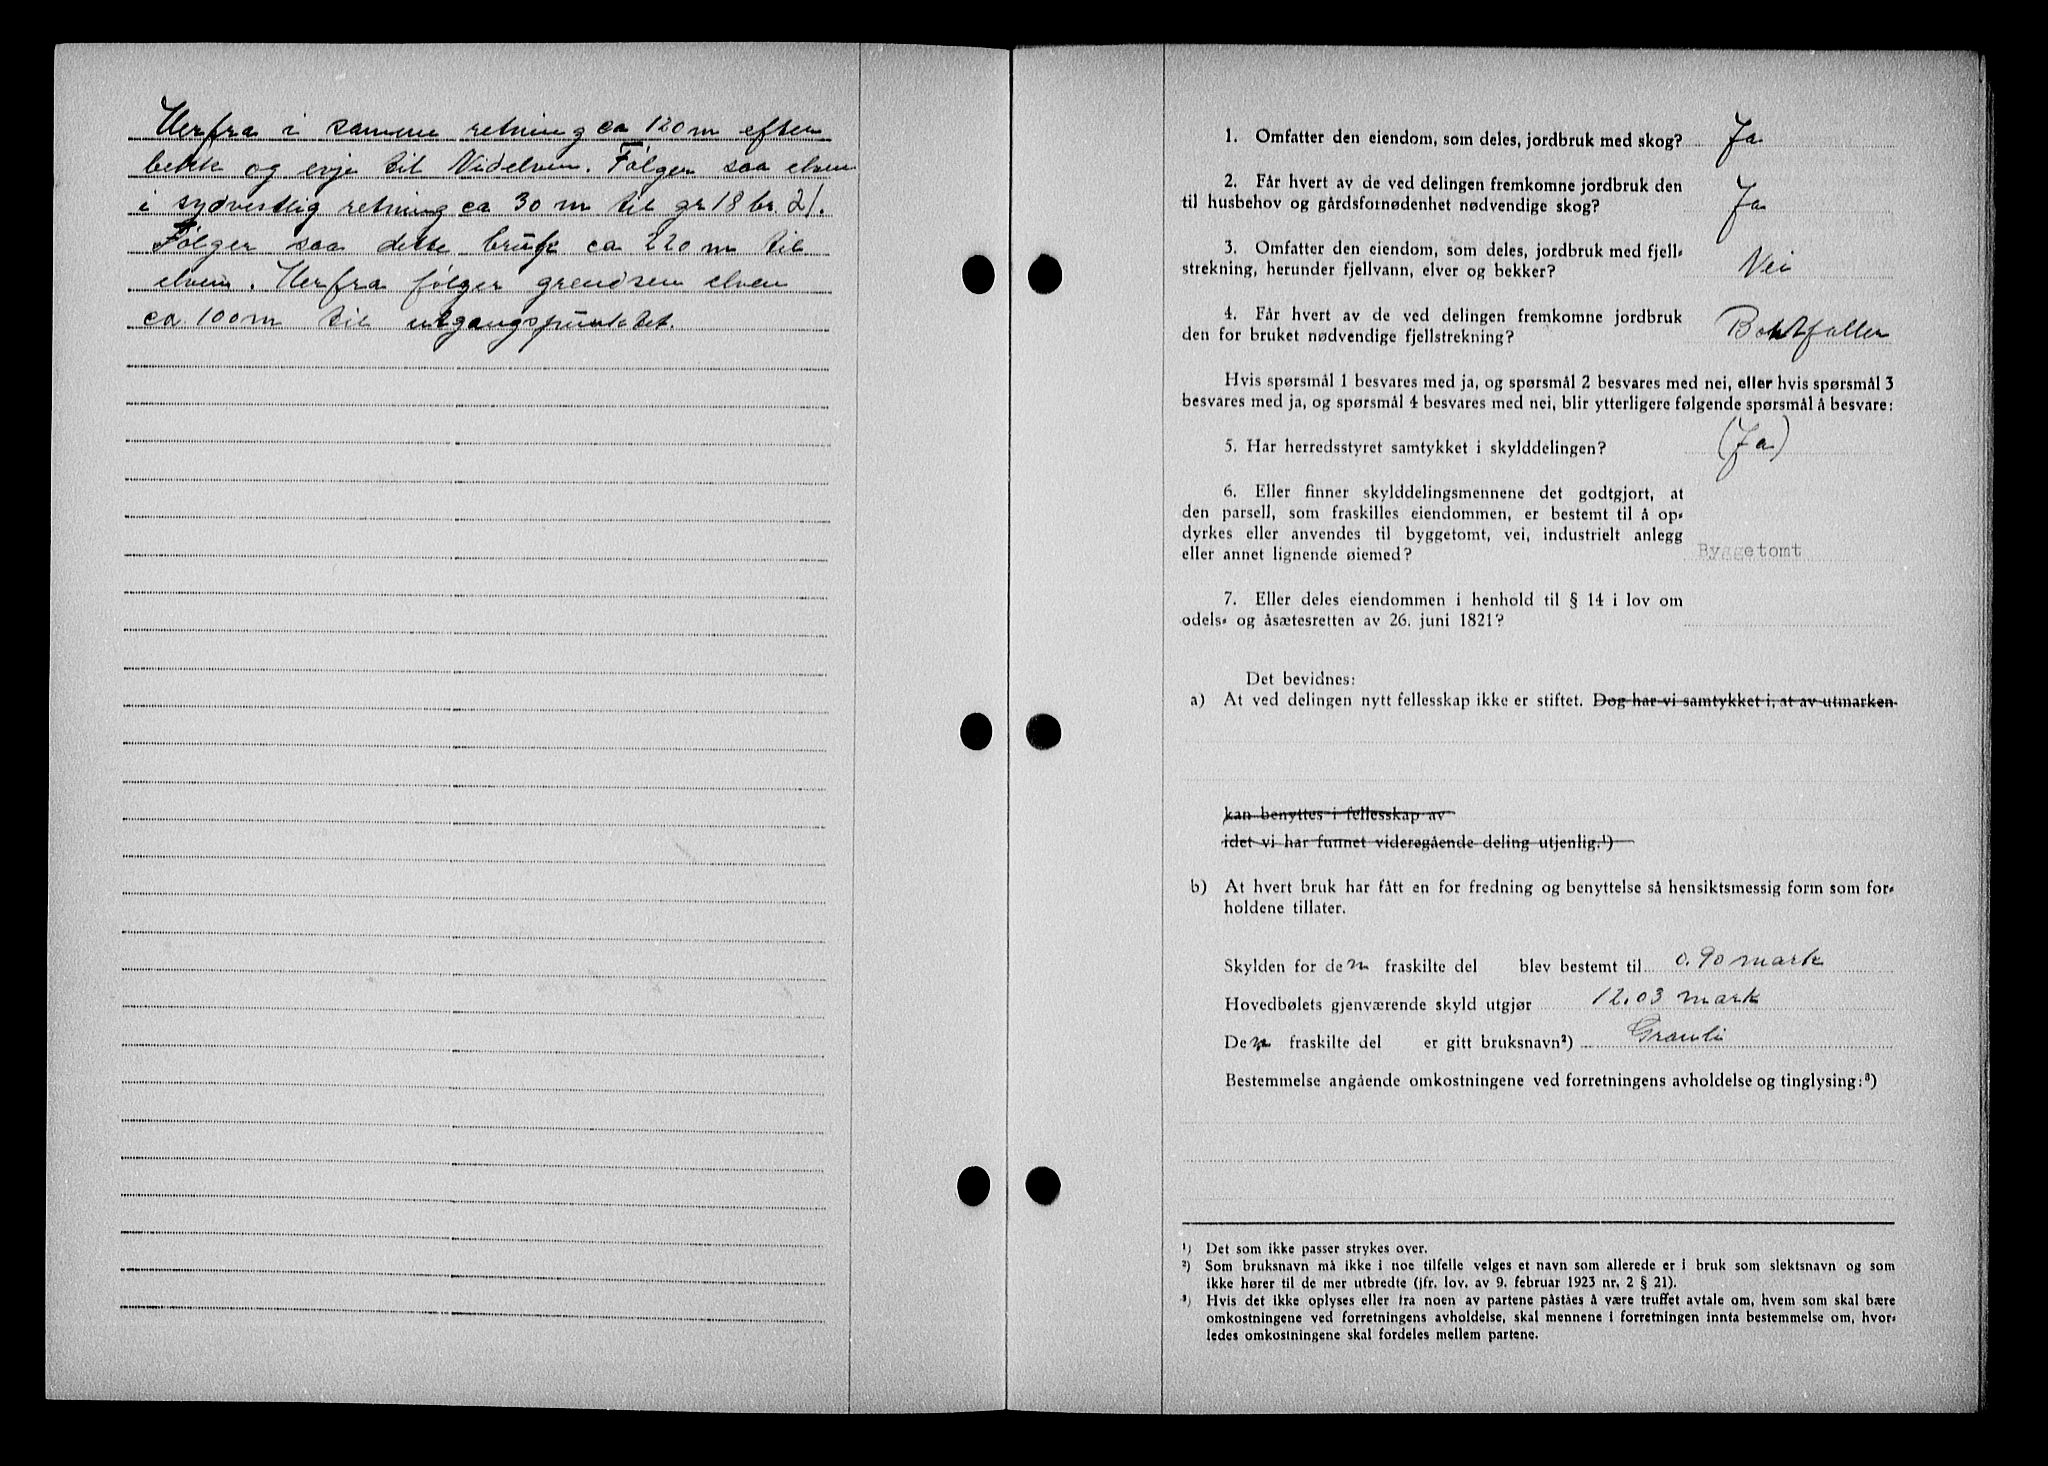 Herfra i samme retning ca 120 m efter
bekk og evje til Nidelven. Følger saa elven
i sydvestlig retning ca 30 m til gr 18 br. 21.
Følger saa dette bruk ca 220 m til
elven. Herfra følger grendsen elven
ca 100 m til utgangspunktet.
1. Omfatter den eiendom, som deles, jordbruk med skog? Ja
2. Får hvert av de ved delingen fremkomne jordbruk den
til husbehov og gårdsfornødenhet nødvendige skog? Ja
3. Omfatter den eiendom, som deles, jordbruk med fjell-
strekning, herunder fjellvann, elver og bekker? Nei
4. Får hvert av de ved delingen fremkomne jordbruk
den for bruket nødvendige fjellstrekning? Bortfaller
Hvis spørsmål 1 besvares med ja, og spørsmål 2 besvares med nei, eller hvis spørsmål 3
besvares med ja, og spørsmål 4 besvares med nei, blir ytterligere følgende spørsmål å besvare:
5. Har herredsstyret samtykket i skylddelingen? (Ja)
6. Eller finner skylddelingsmennene det godtgjort, at
den parsell, som fraskilles eiendommen, er bestemt til å op-
dyrkes eller anvendes til byggetomt, vei, industrielt anlegg
eller annet lignende øiemed? Byggetomt
7. Eller deles eiendommen i henhold til § 14 i lov om
odels- og åsætesretten av 26. juni 1821?
Det bevidnes:
a) At ved delingen nytt fellesskap ikke er stiftet. Dog har vi samtykket i, at av utmarken
kan benyttes i fellesskap av
idet vi har funnet videregående deling utjenlig.¹)
b) At hvert bruk har fått en for fredning og benyttelse så hensiktsmessig form som for-
holdene tillater.
Skylden for den fraskilte del blev bestemt til 0.90 mark
Hovedbølets gjenværende skyld utgjør 12.03 mark
Den fraskilte del er gitt bruksnavn²) Granli
Bestemmelse angående omkostningene ved forretningens avholdelse og tinglysing:³)
¹) Det som ikke passer strykes over.
²) Som bruksnavn må ikke i noe tilfelle velges et navn som allerede er i bruk som slektsnavn og som
ikke hører til de mer utbredte (jfr. lov. av 9. februar 1923 nr. 2 § 21).
³) Hvis det ikke oplyses eller fra noen av partene påståes å være truffet avtale om, hvem som skal bære
omkostningene ved forretningens avholdelse, skal mennene i forretningen innta bestemmelse om, hvor-
ledes omkostningene skal fordeles mellem partene.